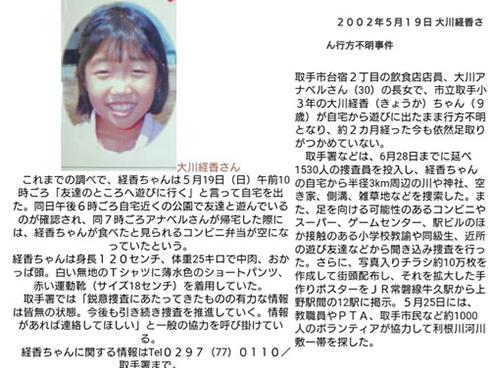 ２００２年５月１９日 大川経香さ
ん行方不明事件
大川経香さん
これまでの調べで、経香ちゃんは５月19日（日）午前10
時ごろ「友達のところへ遊びに行く」と言って自宅を出
た。同日午後６時ごろ自宅近くの公園で友達と遊んでいる
のが確認され、同７時ごろアナベルさんが帰宅した際に
は、経香ちゃんが食べたと見られるコンビニ弁当が空にな
っていたという。
経香ちゃんは身長１２０センチ、体重25キロで中肉、おか
っぱ頭。白い無地のＴシャツに薄水色のショートパンツ、
赤い運動靴（サイズ18センチ）を着用していた。
取手署では「鋭意捜査にあたってきたものの有力な情報
は皆無の状態。今後も引き続き捜査を推進していく。情報
があれば連絡してほしい」と一般の協力を呼び掛けてい
る。
経香ちゃんに関する情報はTel０２９７（77）０１１０／
取手署まで。
取手市台宿２丁目の飲食店店員、大川アナ
ベルさん（30）の長女で、市立取手小
３年の大川経香（きょうか）ちゃん（９
歳）が自宅から遊びに出たまま行方不明
となり、約２カ月経った今も依然足取り
がつかめていない。
取手署などは、6月28日までに延べ
1530人の捜査員を投入し、経香ちゃん
の自宅から半径3km周辺の川や神社、空
き家、側溝、雑草地などを捜索した。ま
た、足を向ける可能性のあるコンビニや
スーパー、ゲームセンター、駅ビルのほ
か接触のある小学校教諭や同級生、近所
の遊び友達などから聞き込み捜査を行っ
た。さらに、写真入りチラシ約10万枚を
作成して街頭配布し、それを拡大した手
作りポスターをＪＲ常磐線牛久駅から上
野駅間の12駅に掲示。５月25日には、
教職員やＰＴＡ、取手市民など約1000
人のボランティアが協力して利根川河川
敷一帯を探した。